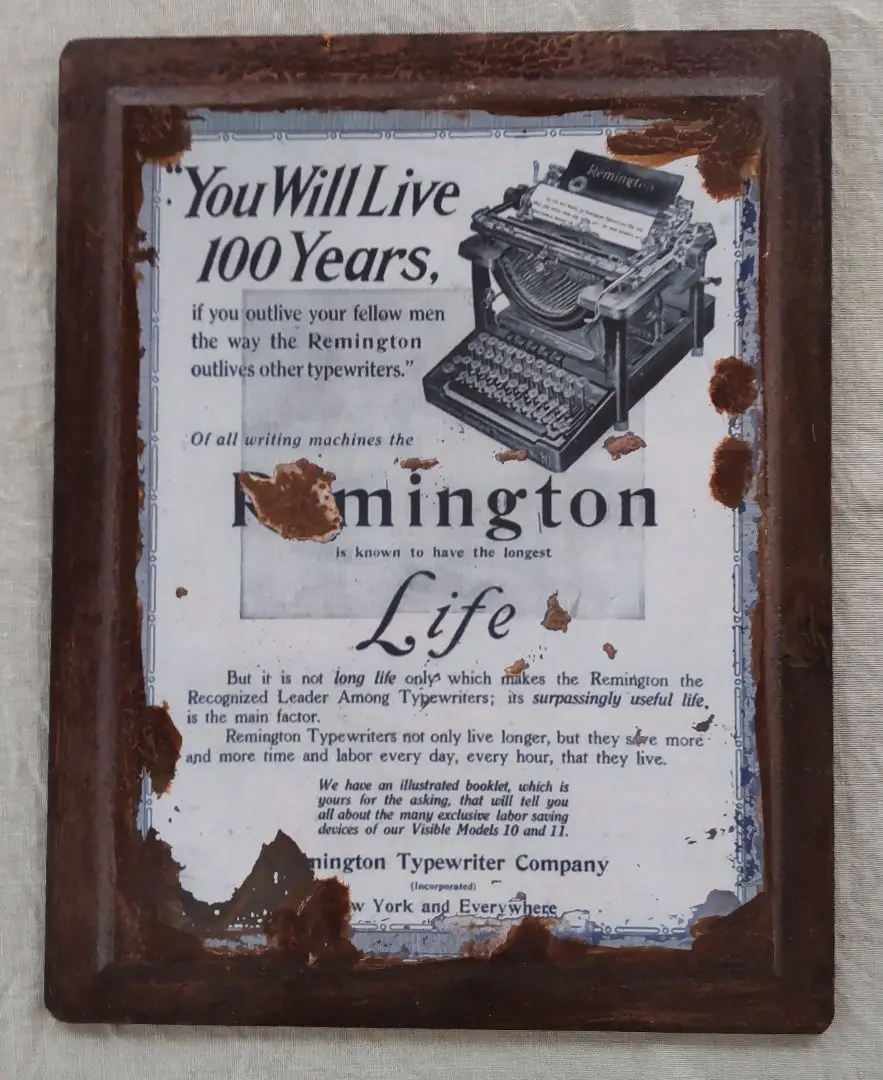 "You Will Live
100 Years,
if you outlive your fellow men
the way the Remington
outlives other typewriters."
Remington
Of all writing machines the
Remington
is known to have the longest
Life
But it is not long life only which makes the Remington the
Recognized Leader Among Typewriters; its surpassingly useful life,
is the main factor.
Remington Typewriters not only live longer, but they save more
and more time and labor every day, every hour, that they live.
We have an illustrated booklet, which is
yours for the asking, that will tell you
all about the many exclusive labor saving
devices of our Visible Models 10 and 11.
mington Typewriter Company
(Incorporated)
w York and Everywhere